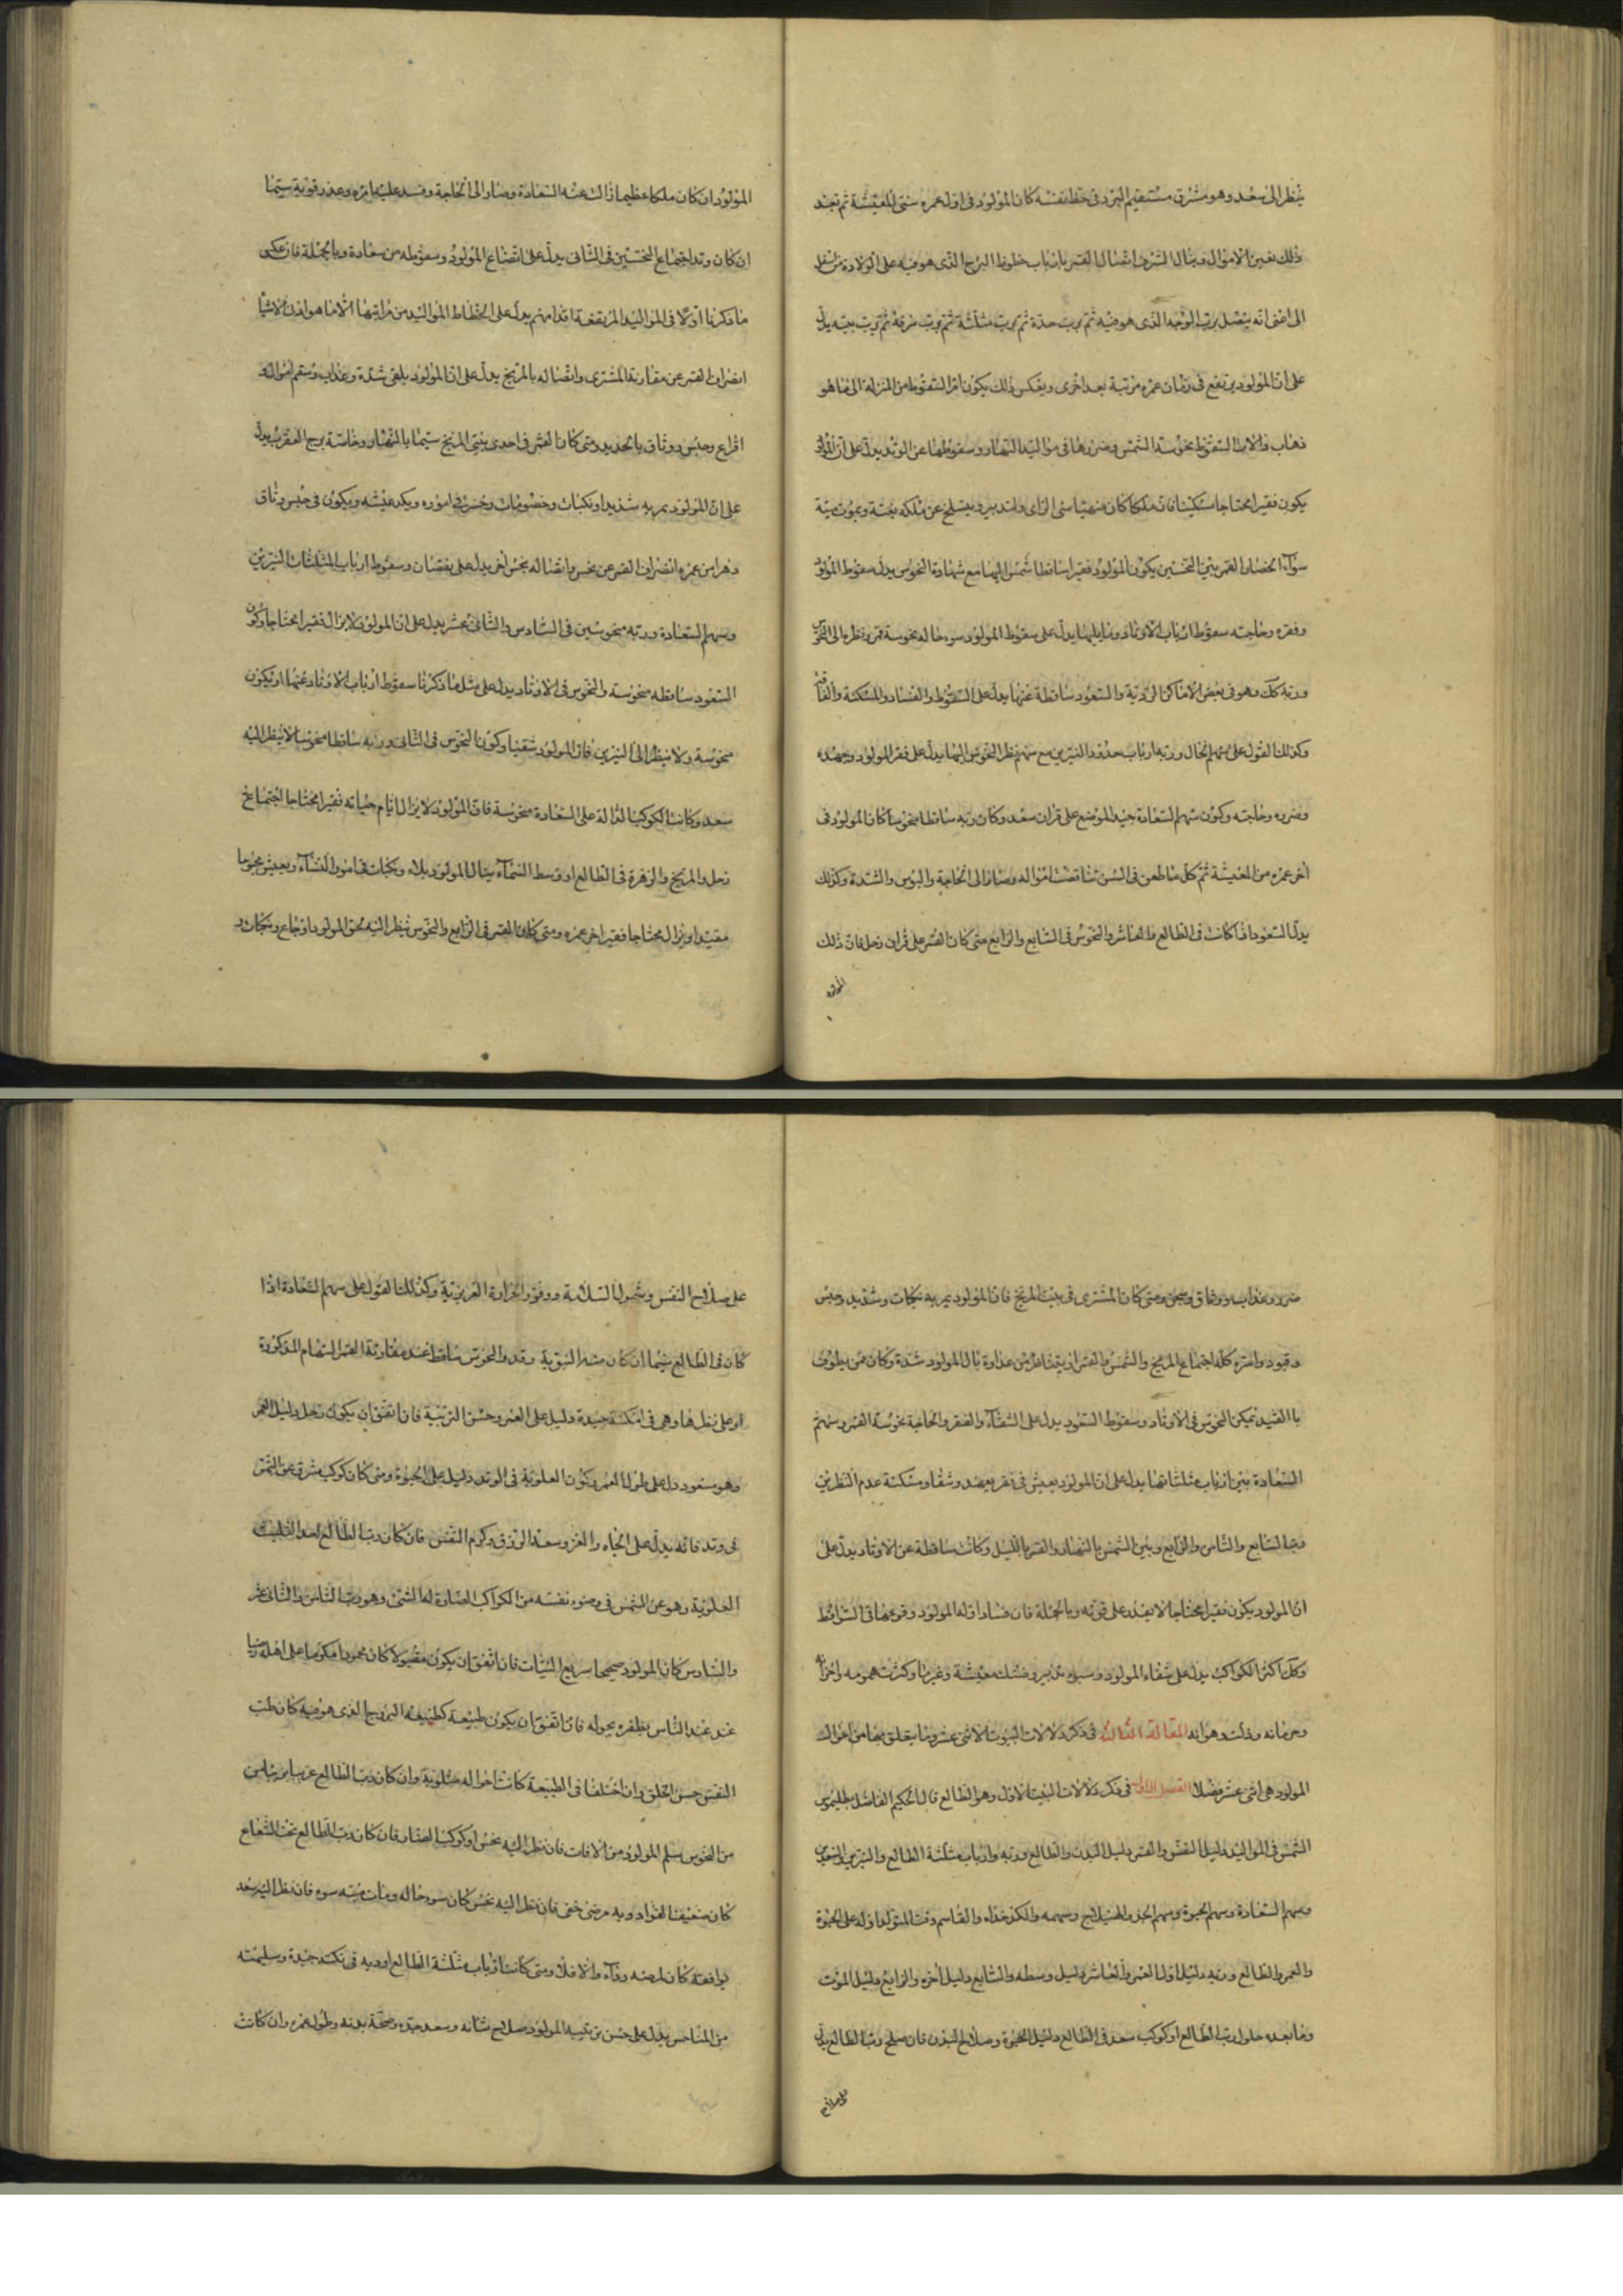 ينظر الى سعد وهو مشرق مستقيم السير فى حظ نفسه كان المولود فى اول عمره سئ المعيشة ثم تجد
ذلك الاموال وينال الشرف اتصال القمر بارباب حظوظ البرج الذى هو فيه على الولادة من اسفل
الى اعنى انه يتصل برب الوجه الذى هو فيه ثم برب حده ثم برب مثلثته ثم برب شرفه ثم برب بيته يدل
على ان المولود يرتفع فى زمان عمره مرتبة بعد اخرى وبعكس ذلك يكون امر السقوط من المنزلة الى ما هو
دلالات السقوط نحوسة الشمس وضررها فى مواليد النهار وسقوطها عن الوتد يدل على ان المولود
يكون فقيرا محتاجا مسكينا فان ملكا كان سئ الراى والتدبير وينسلخ عن ملكه بغتة ويموت ميتة
سوآء انحصار القمر بين النحسين يكون المولود فقيرا ساقطا مع شهادة النحوس يدل سقوط المولود
وفقره وحاجته سقوط ارباب الاوتاد وما يليها يدل على سقوط المولود سوء حاله نحوسة قمر ونظره الى النحوس
وربه كك وهو فى بعض الاماكن الردية والسعود ساقطة عنها يدل على السقوط والفساد والمسكنة والفاقة
وكذلك القول على سهم الحال وربه ارباب حدود النيرين مع سهم نظر النحوس اليها يدل على فقر المولود وجهده
وضرره وحاجته وكون سهم السعادة جيد الموضع على قران سعد وكان ربه ساقطا منحوسا كان المولود فى
آخر عمره من المعيشة ثم كل ما طعن فى السن تناقصت امواله وصار الى الحاجة والبوس والشدة وكذلك
يدل السعود اذا كانت فى الطالع والعاشر والنحوس فى السابع والرابع متى كان القمر على قران زحل فان ذلك
المولود
المولود ان كان ملكا عظيما زالت عنه السعادة وصار الى الحاجة وفسد عليه امره وعدم قوته سيما
ان كان وتد اجتماع النحسين فى الثانى يدل على اتضاع المولود وسقوطه من سعادة وبالجملة فان عكس
ما ذكرنا اولا فى المواليد المرتفعة يدل على انحطاط المواليد من مراتبها الا ما هو ادن الاشيآ
انصراف القمر عن مقارنة المشترى واتصاله بالمريخ يدل على ان المولود يلقى شدة وعذاب وسقم امواله و
افزاع وحبس ووثاق بالحديد ومتى كان القمر فى احدى بيتى المريخ سيما بالنهار وخاصة برج العقرب يدل
على ان المولود يمر به شدايد ونكبات وخصومات وخسر فى اموره ويكدر عيشه ويكون فى حبس وثاق
دهرا من عمره انصراف القمر عن نحس واتصاله بنحس آخر يدل على نقصان وسقوط ارباب المثلثات النيرين
وسهم السعادة وربه منحوسين فى السادس والثانى عشر يدل على ان المولود لا يزال فقيرا محتاجا وكون
السعود ساقطه منحوسة والنحوس فى الاوتاد يدل على مثل ما ذكرنا سقوط ارباب الاوتاد عنها او تكون
منحوسة ولا ينظر الى النيرين فان المولود شقيا وكون النحوس فى الثانى وربه ساقطا منحوسا لا ينظر اليه
سعد وكانت الكوكب الدالة على السعادة منحوسة فان المولود لا يزال ايام حياته فقيرا محتاجا اجتماع
زحل والمريخ والزهرة فى الطالع او وسط السمآء ينال المولود بلاء ونكبات فى امور النسآء ويعيش
محتاجا فقيرا اخر عمره ومتى كان القمر فى الرابع والنحوس تنظر اليه لحق المولود اوجاع ونكبات و
ضرر وعذاب ووثاق وسجن ومتى كان المشترى فى بيت المريخ فان المولود يمر به نكبات وشدايد وحبس
وقيود واسره كله اجتماع المريخ والشمس والقمر عداوة نال المولود شدة وكان ممن يطوف
بالقيد تمكين النحوس فى الاوتاد وسقوط السعود يدل على الشقآء والفقر والحاجة نحوسة القمر وسهم
السعادة بين ارباب مثلثاتها يدل على ان المولود يعيش فى فقر وجهد وشقا ومسكنة عدم النظر بين
رب السابع والثامن والرابع وبين الشمس بالنهار والقمر بالليل وكانت ساقطة عن الاوتاد يدل على
ان المولود يكون فقيرا محتاجا لا يقدر على قوته وبالجملة فان فساد ادلة المولود وقوعها فى السواقط
وكك اكثر الكواكب يدل على شقاء المولود وسوء تدبيره وضنك معيشة وغربتا وكثرت همومه واحزانه
وحرمانه وذلته وهوانه المقالة الثالثة فى ذكر دلالات البيوت الاثنى عشر وما يتعلق بها من احوال
المولود هى اثنى عشر فصلا الفصل الاول فى ذكر دلالات البيت الاول وهو الطالع قال الحكيم الفاضل بطلميوس
الشمس فى المواليد دليل النفس والقمر دليل البدن والطالع وربه وارباب مثلثة الطالع والنيرين والسعدين
وسهم السعادة وسهم الحيوة وسهم الجد والهيلاج وسهمه والكدخداه والقاسم وقت المتولد ادله على الحيوة
والعمر والطالع وربه دليل اول العمر والعاشر دليل وسطه والسابع دليل آخره والرابع دليل الموت
وما بعده حلول رب الطالع او كوكب سعد فى الطالع دليل الحيوة وصلاح البدن فان صلح رب الطالع يدل
على صلاح
على صلاح النفس وشمول السلامة ووفور الحرارة الغريزية وكذلك القول على سهم السعادة اذا
كان فى الطالع سيما ان كان والنحوس ساقطا عند مقارنة القمر السهام المذكورة
او على نظرها وهى فى امكنة جيدة دليل على العمر وحسن التربية فان اتفق ان يكون زحل دليل العمر
وهو مسعود دل على طول العمر وكون العلوية فى الوتد دليل على الحيوة ومتى كان كوكب شرق عن الشمس
فى وتد فانه يدل على الجاه والعز وسعة الرزق وكرم النفس فان كان رب الطالع احد الثلثة
العلوية وهو عن الشمس فى وضوء نفسه من الكواكب الضارة له الشئ وهو رب الثامن والثانى عشر
والسادس كان المولود صحيحا سريع فان اتفق ان يكون مقبولا كان محمودا مكرما على اهله
عند الناس يظفر بحوله فان اتفق ان يكون طبيعة كطبيعة البروج الذى هو فيه كان طيب
النفس حسن الخلق وان اختلفا فى الطبيعة كانت احواله متلوية وان كان رب الطالع
من النحوس سلم المولود من الافات فان نظر اليه نحس او كوكب الضار فان كان رب الطالع تحت الشعاع
كان ضعيف الفؤاد وبه مرض خفى فان نظر اليه نحس كان سوء حاله ومات ميتة سوء فان نظر اليه سعد
يوافقه كان لمرضه دوآء والا فلا ومتى كانت ارباب مثلثة الطالع او ربه فى جيدة وسليمته
من المناحس يدل على حسن تربية المولود صلاح شانه وسعد جده وصحة بدنه وطول عمره وان كانت